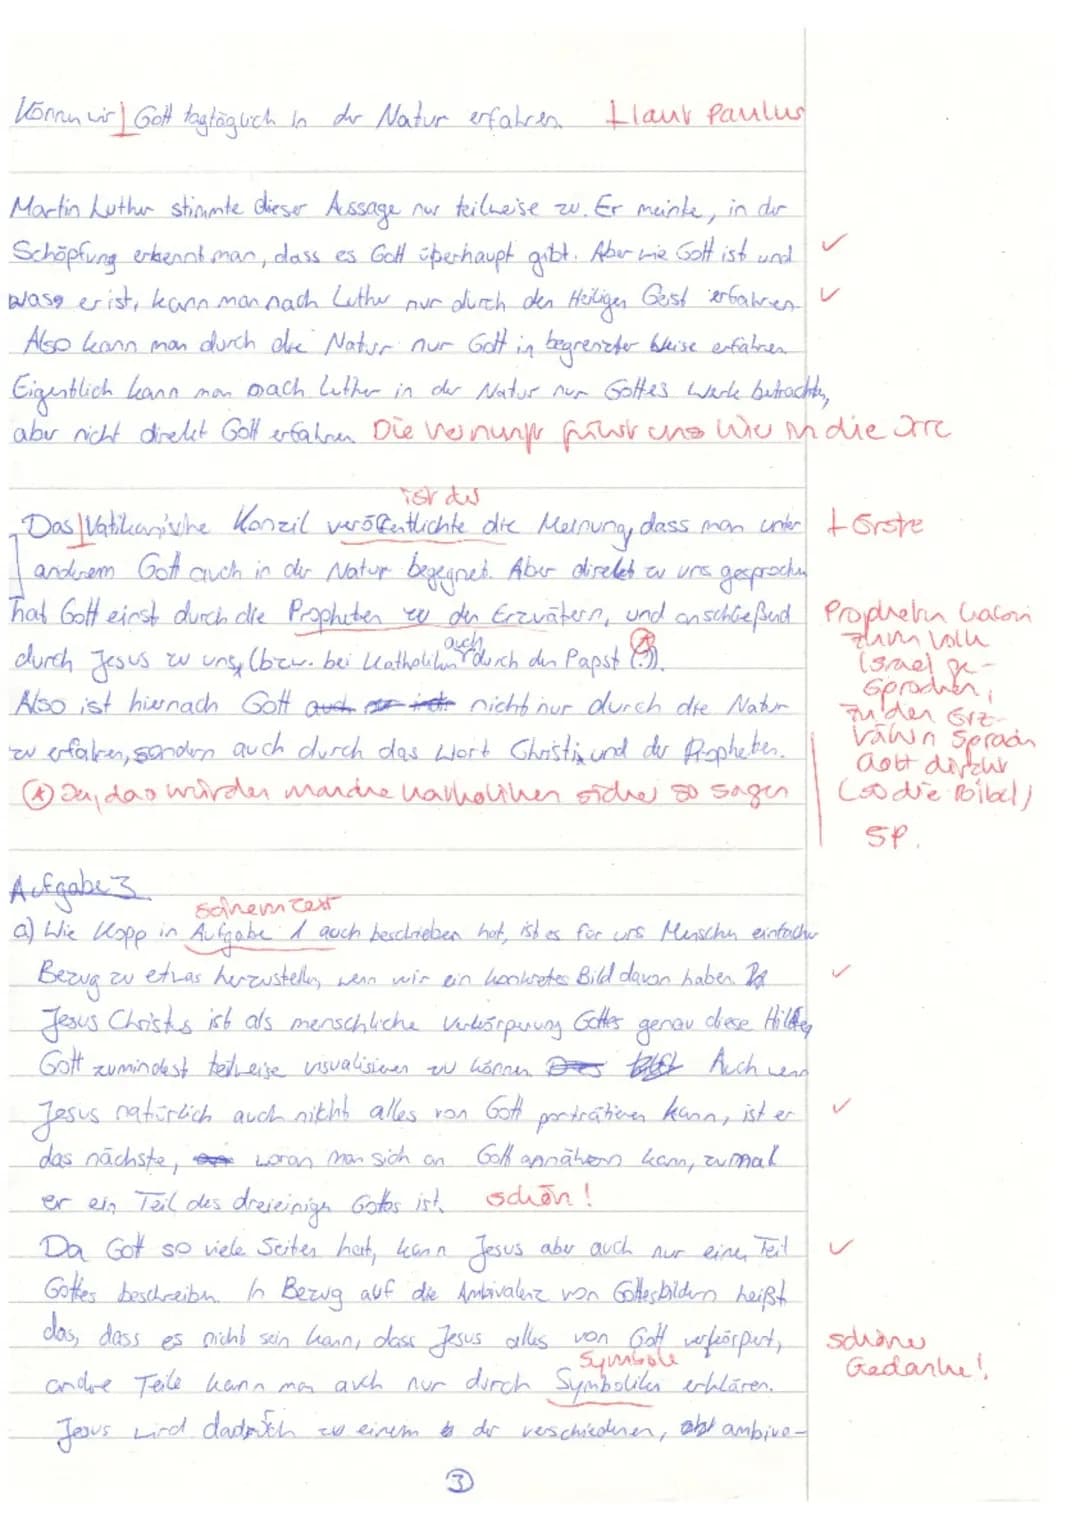 können wir | Gott tagtäglich in der Natur erfahren. ⊢ laut Paulus
Martin Luther stimmte dieser Aussage nur teilweise zu. Er meinte, in der
Schöpfung erkennt man, dass es Gott überhaupt gibt. Aber wie Gott ist und ✓
was er ist, kann man nach Luther nur durch den Heiligen Geist erfahren. ✓
Also kann man durch die Natur nur Gott in begrenzter Weise erfahren.
Eigentlich kann man nach Luther in der Natur nur Gottes Werke betrachten,
aber nicht direkt Gott erfahren. Die Vernunft führt uns hier in die Irre
ist der
Das | Vatikanische Konzil veröffentlichte die Meinung, dass man unter ⊢ Erste
anderem Gott auch in der Natur begegnet. Aber direkt zu uns gesprochen
hat Gott einst durch die Propheten zu den Erzvätern, und anschließend
auch
durch Jesus zu uns, (bzw. bei Katholiken durch den Papst (?)).
Also ist hiernach Gott nicht nur durch die Natur
zu erfahren, sondern auch durch das Wort Christi und der Propheten.
Propheten haben
zum Volk
Israel ge-
sprochen;
zu den Erz-
vätern sprach
Gott direkt
(so die Bibel)
SP.
Ⓐ Ja, das würden manche Katholiken sicher so sagen
Aufgabe 3
seinem Text
a) Wie Kopp in Aufgabe 1 auch beschrieben hat, ist es für uns Menschen einfacher
Bezug zu etwas herzustellen, wenn wir ein konkretes Bild davon haben. ✓
Jesus Christus ist als menschliche Verkörperung Gottes genau diese Hilfe,
Gott zumindest teilweise visualisieren zu können. Auch wenn
Jesus natürlich auch nicht alles von Gott porträtieren kann, ist er ✓
das nächste, woran man sich an Gott annähern kann, zumal
er ein Teil des dreieinigen Gottes ist. schön!
Da Gott so viele Seiten hat, kann Jesus aber auch nur einen Teil ✓
Gottes beschreiben. In Bezug auf die Ambivalenz von Gottesbildern heißt
das, dass es nicht sein kann, dass Jesus alles von Gott verkörpert,
schöner
Gedanke!
Symbole
andre Teile kann man auch nur durch Symboliken erklären.
Jesus wird dadurch zu einem der verschiedenen, ambiva-
③